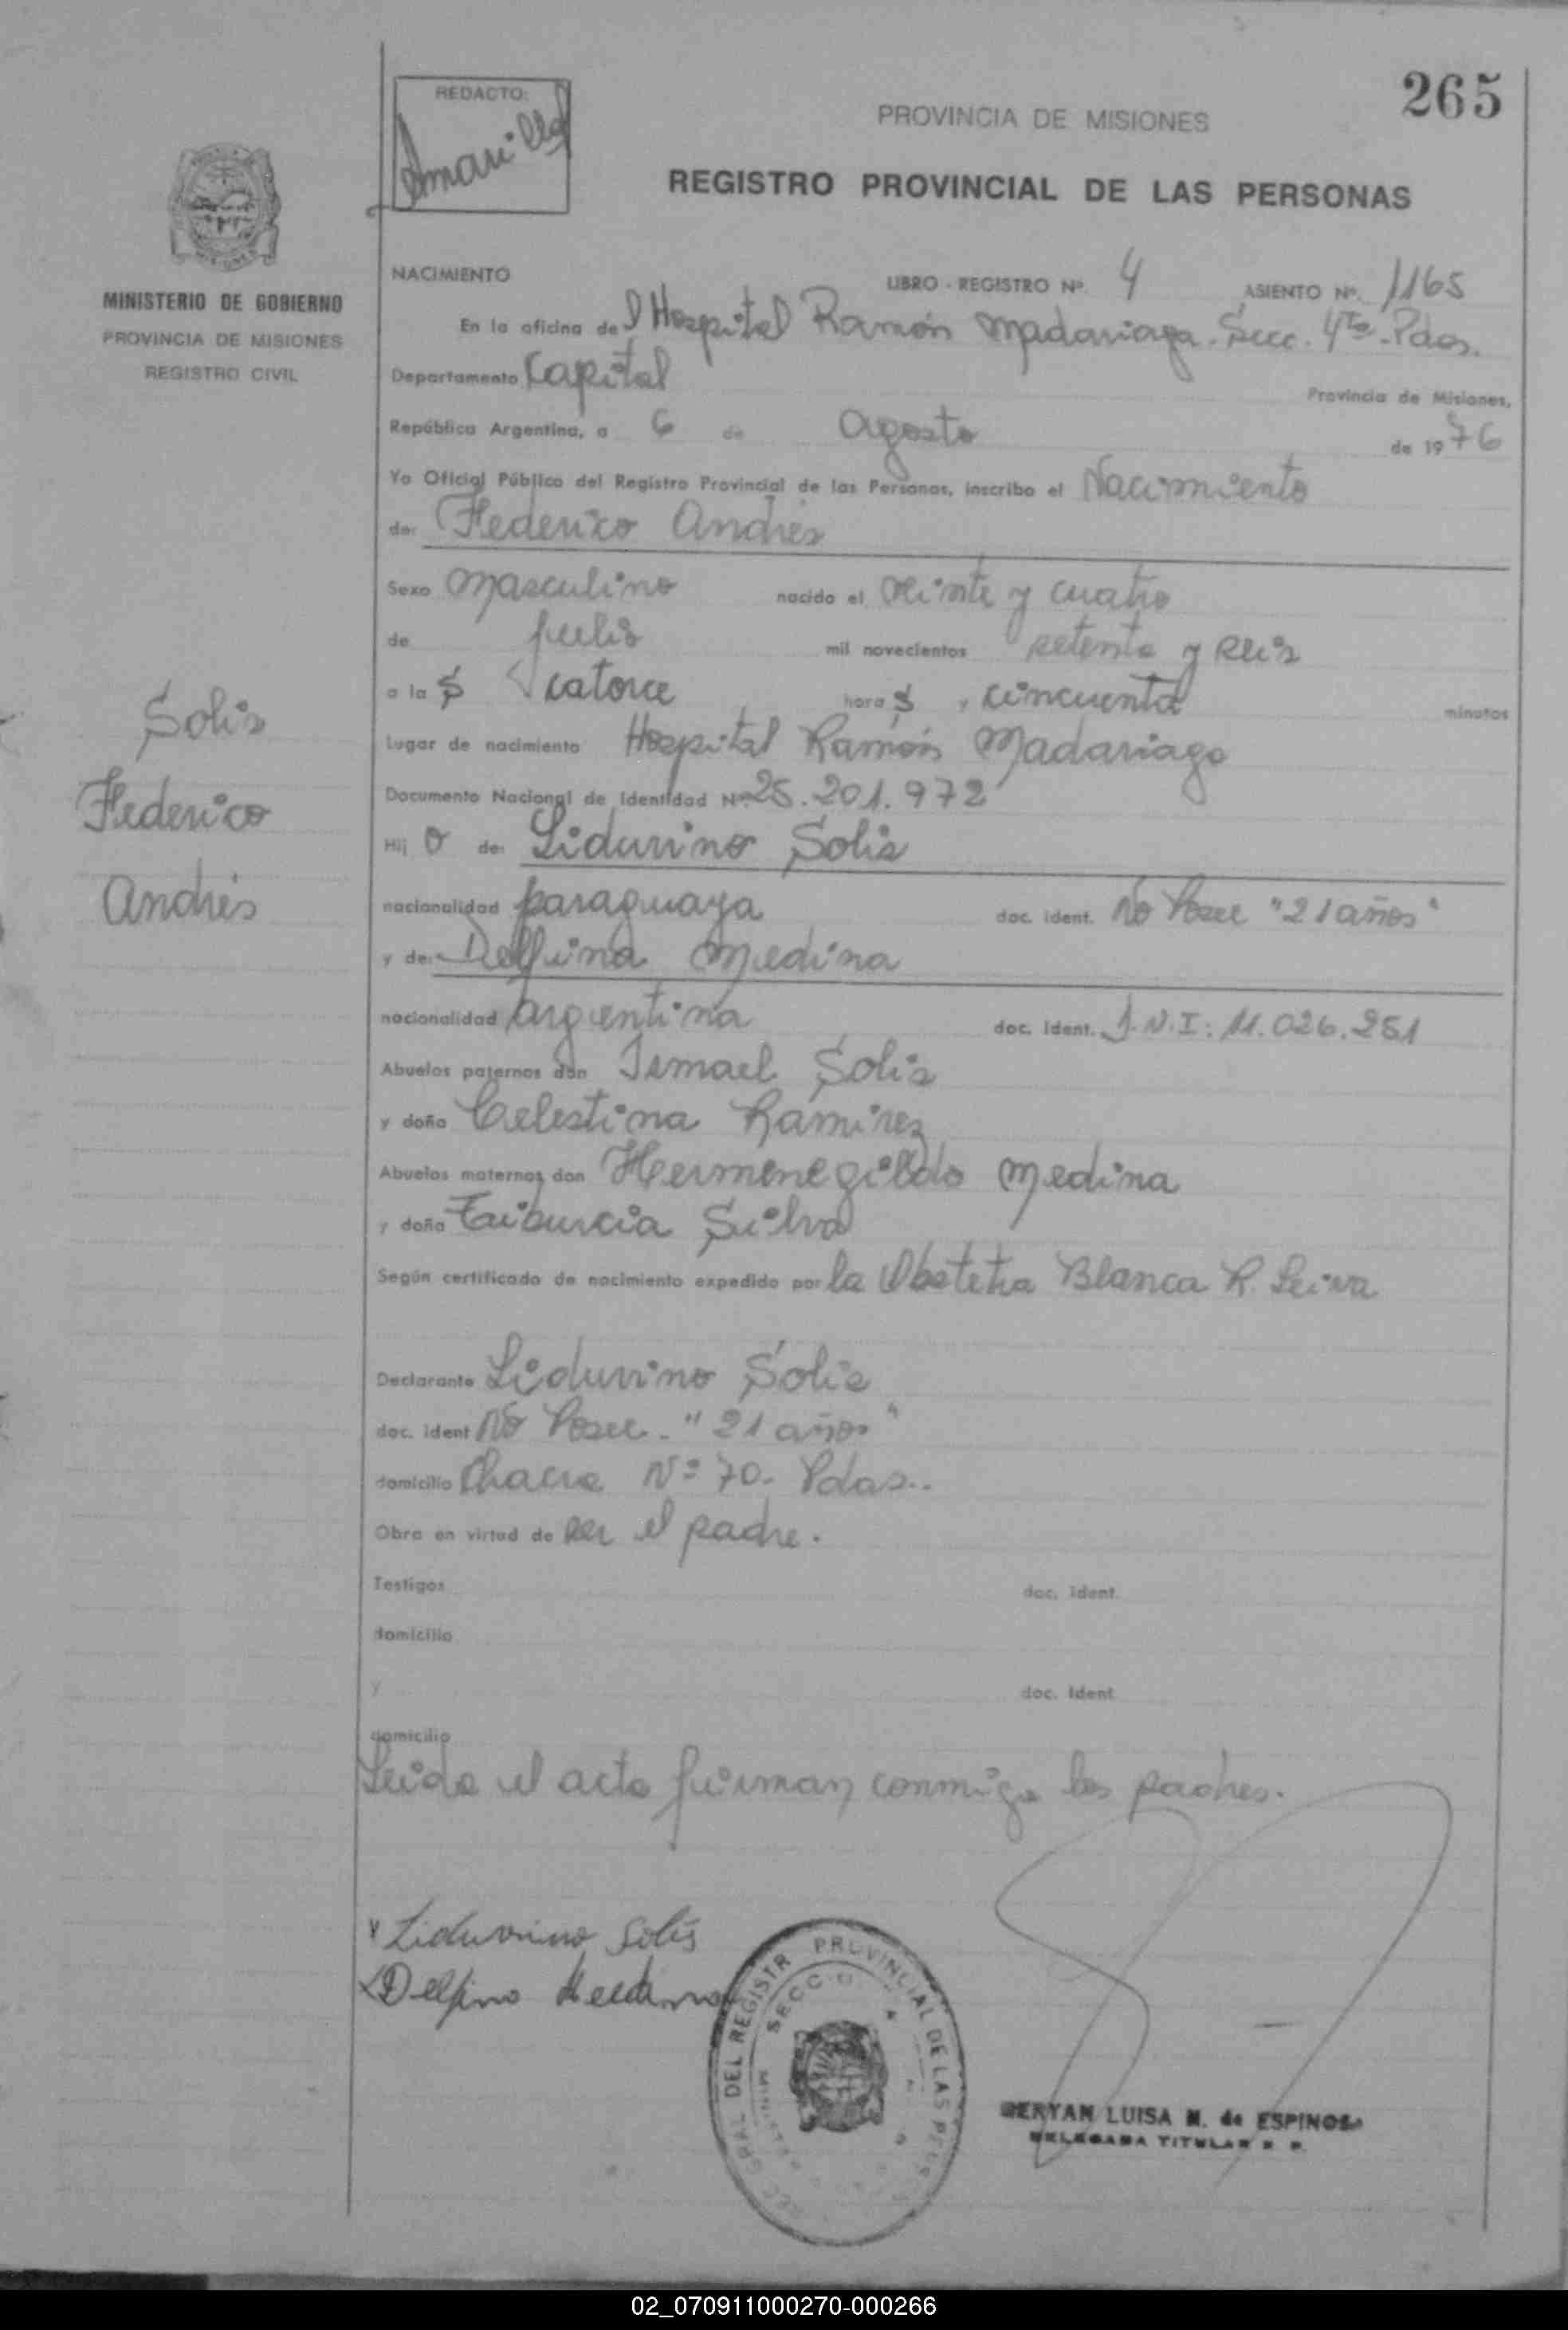 265
REDACTO:
Amarilla
PROVINCIA DE MISIONES
REGISTRO PROVINCIAL DE LAS PERSONAS
MINISTERIO DE GOBIERNO
PROVINCIA DE MISIONES
REGISTRO CIVIL
NACIMIENTO LIBRO - REGISTRO Nº. 4 ASIENTO Nº. 1165
En la oficina del Hospital Ramón Madariaga. Secc. 4ta. Pdas.
Departamento Capital Provincia de Misiones,
República Argentina, a 6 de agosto de 1976
Yo Oficial Público del Registro Provincial de las Personas, inscribo el Nacimiento
de: Federico Andrés
Sexo masculino nacido el veinte y cuatro
de julio mil novecientos setenta y seis
a las catorce horas y cincuenta minutos
Lugar de nacimiento Hospital Ramón Madariaga
Documento Nacional de Identidad Nº 25.201.972
Hij o de: Liduvino Solis
nacionalidad paraguaya doc. ident. No Posee "21 años"
y de: Delfina Medina
nacionalidad argentina doc. ident. D.N.I: 11.026.251
Abuelos paternos don Ismael Solis
y doña Celestina Ramirez
Abuelos maternos don Hermenegildo Medina
y doña Tiburcia Silva
Según certificado de nacimiento expedido por la Obstetra Blanca R. Leiva
Declarante Liduvino Solis
doc. ident No Posee. "21 años"
domicilio Chacra Nº 70. Pdas..
Obra en virtud de ser el padre.
Testigos doc. ident.
domicilio
y doc. ident
domicilio
Leida el acta firman conmigo los padres.
Solis
Federico
Andrés
Liduvino Solis
Delfina Medina
DEL REGISTR PROVINCIAL DE LAS PERS
SECCIO
LUISA M. de ESPINOSA
DELEGADA TITULAR
02_070911000270-000266